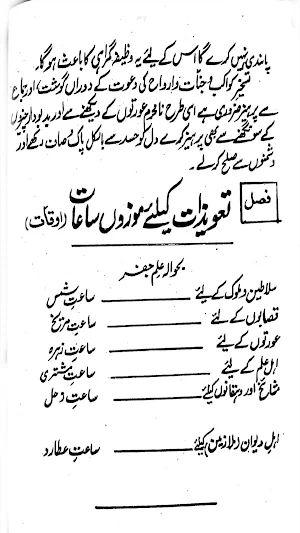 پابندی نہیں کرے گا اس کے لئے یہ وظیفہ گمراہی کا باعث ہوگا۔
تسخیر کواکب و جنات و ارواح کی دعوت کے دوران گوشت اور جماع
سے پرہیز ضروری ہے اسی طرح نامحرم عورتوں کے دیکھنے سے اور بدبودار چیزوں
کے سونگھنے سے بھی پرہیز کرے دل کو حسد سے بالکل پاک و صاف رکھے اور
دشمنوں سے صلح کرلے۔
فصل
تعویذات کیلئے موزوں ساعات (اوقات)
بحوالہ علم جفر
سلاطین و ملوک کے لئے ساعتِ شمس
قصابوں کے لئے ساعت مریخ
عورتوں کے لئے ساعت زہرہ
اہل علم کے لئے ساعت مشتری
مشائخ اور دہقانوں کیلئے ساعت زحل
اہلِ دیوان (ملازمین) کیلئے ساعت عطارد